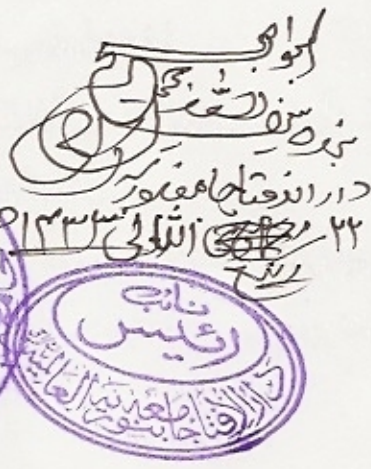 الجواب صحیح
بندہ سیف اللہ جمیل
دار الافتاء جامعہ بنوریہ
۲۲ ربیع الثانی ۱۴۳۳ھ
نائب
رئیس
دار الافتاء جامعہ بنوریہ العالمیہ